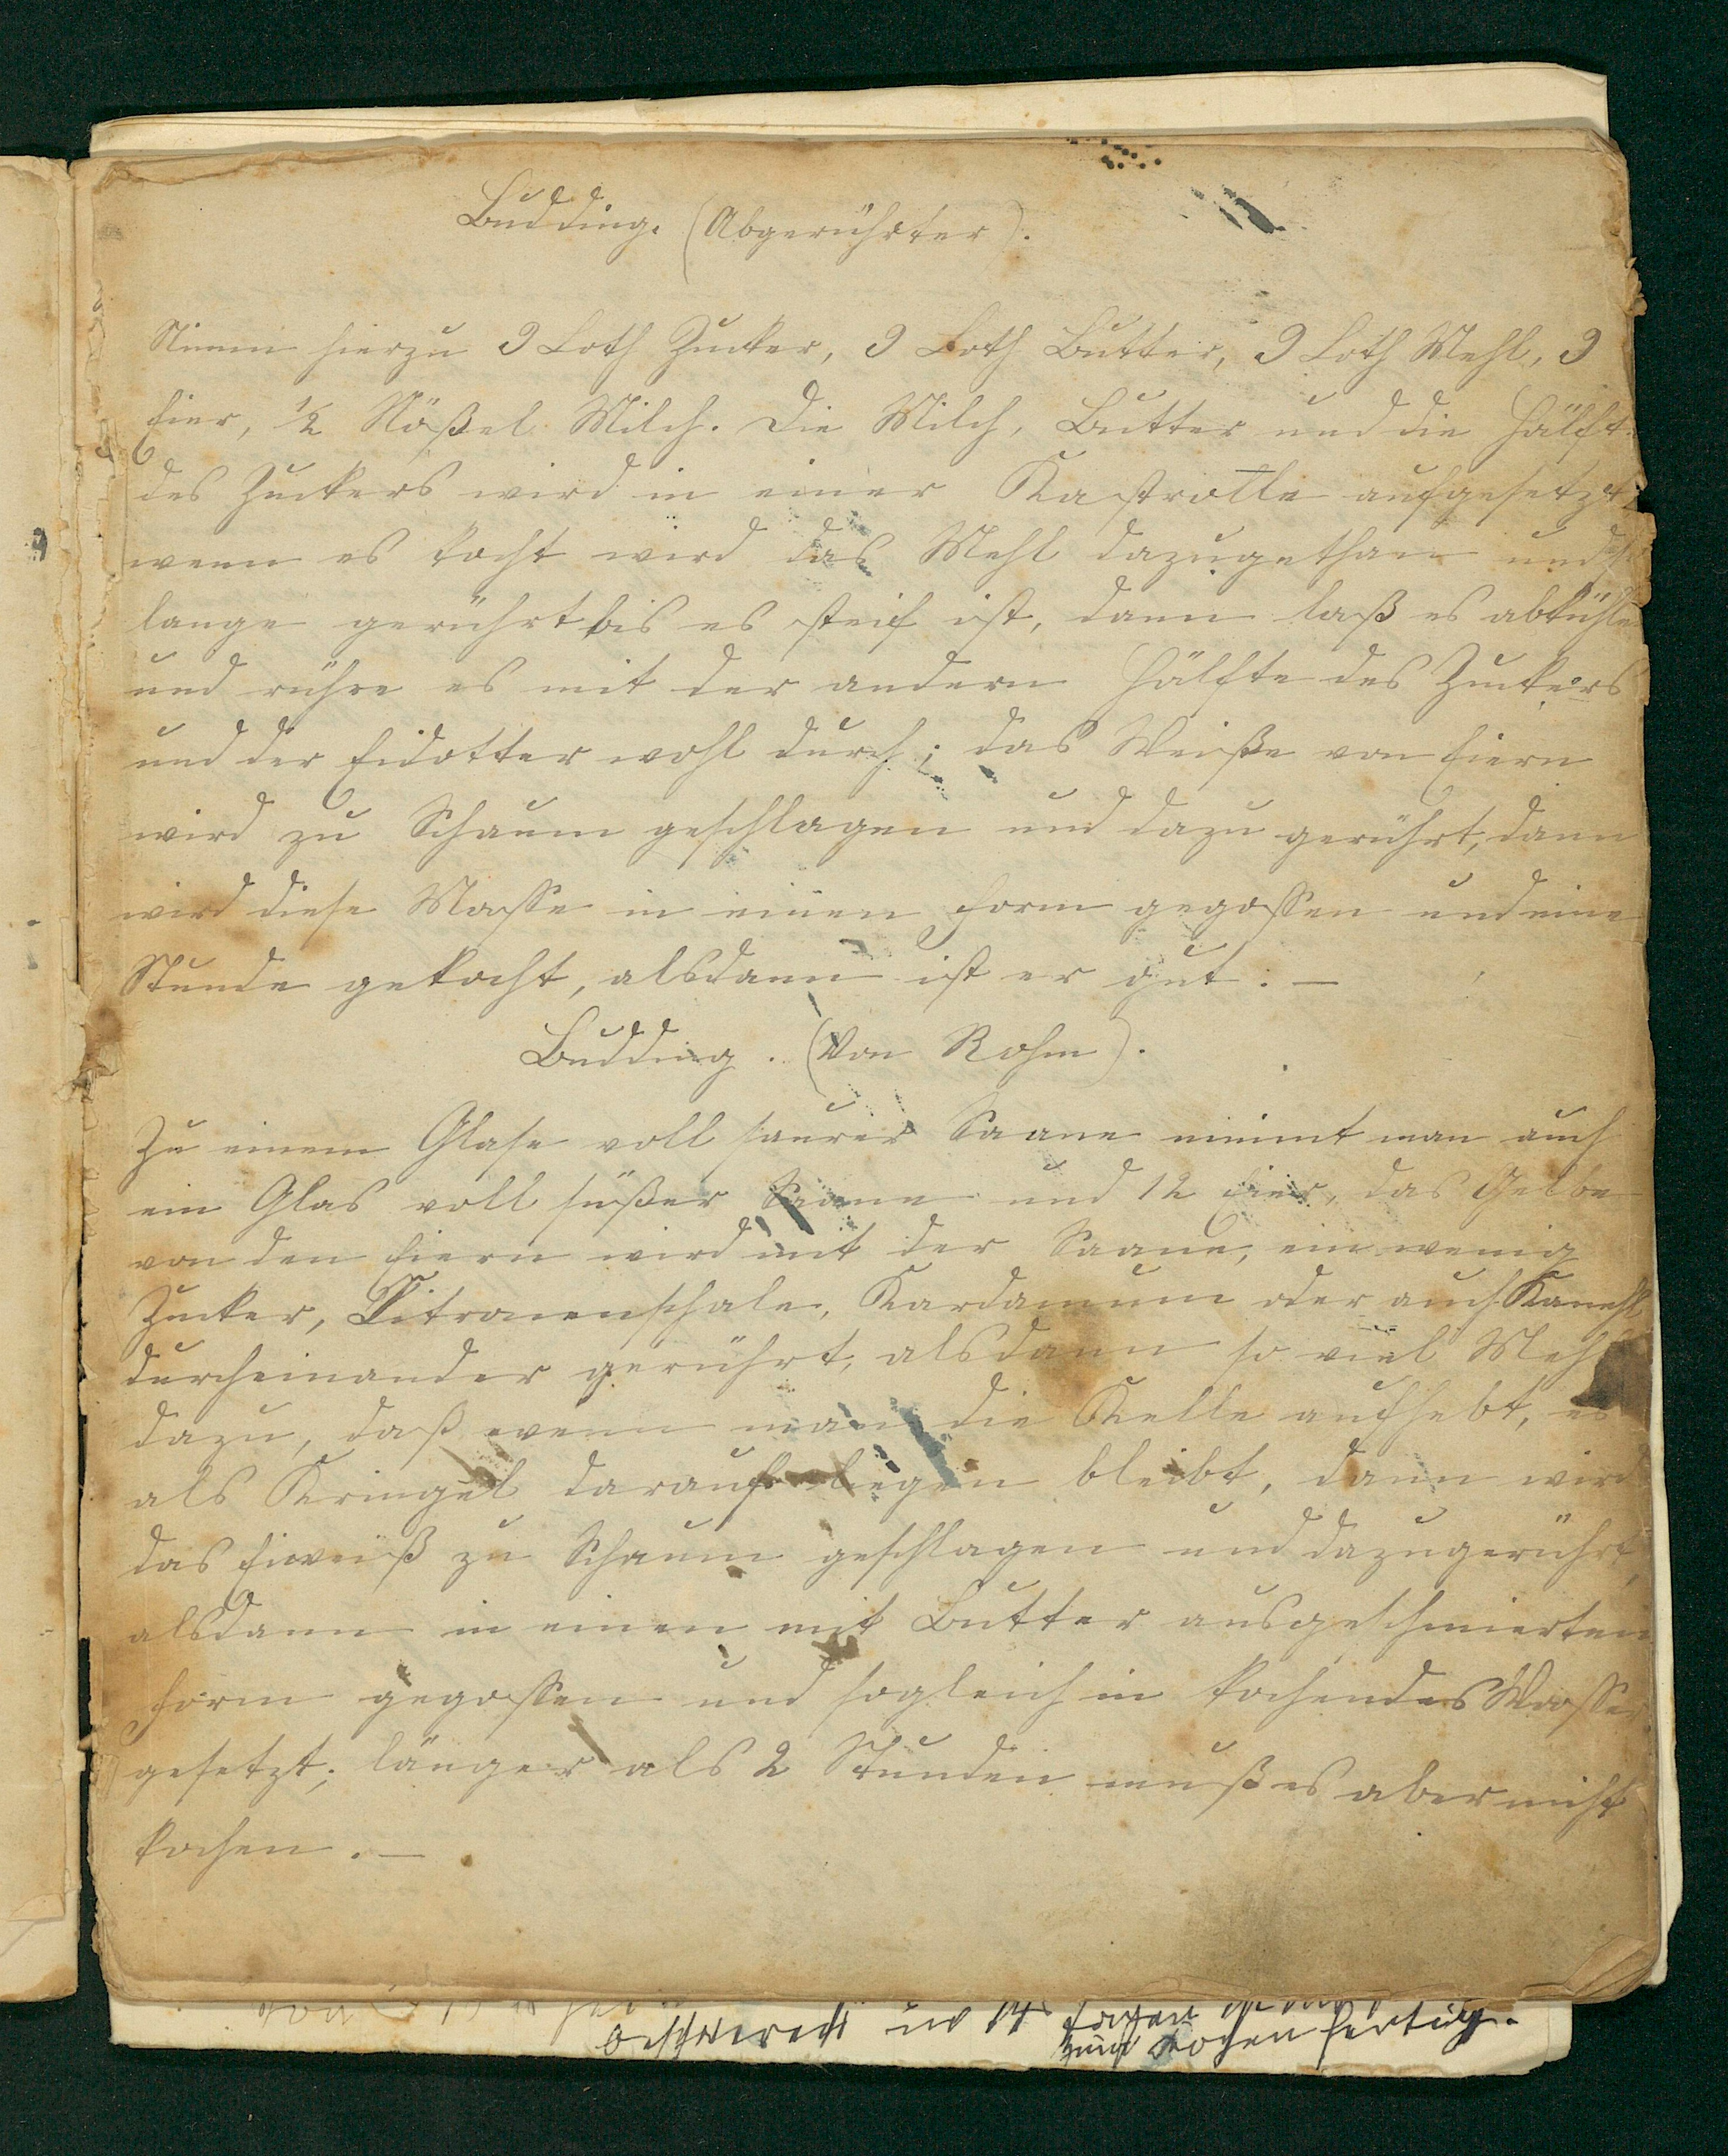 Budding. (Abgerührter).
Nimm hierzu 9 Loth Zucker, 9 Loth Butter, 9 Loth Mehl, 9
Eier, ½ Nößel Milch. Die Milch, Butter und die Hälft
des Zuckers wird in einer Kastrolle aufgesetzt
wenn es kocht wird das Mehl dazugethan und so
lange gerührt bis es steif ist, dann laß es abkühle
und rühre es mit der andern Hälfte des Zuckers
und der Eidotter wohl durch; das Weiße von Eiern
wird zu Schaum geschlagen und dazu gerührt, dann
wird diese Masse in einen Form gegossen und eine
Stunde gekocht, alsdann ist er gut. —
Budding. (Von Rohm).
Zu einem Glase voll saurer Saane nimmt man auch
ein Glas voll süßer Saane und 12 Eier, das Gelbe
von den Eiern wird mit der Saane, ein wenig
Zucker, Citronenschale, Kardamum oder auch Kanehl
durcheinander gerührt, alsdann so viel Mehl
dazu, daß wenn man die Kelle aufhebt, es
als Kringel darauf liegen bleibt, dann wird
das Eiweiß zu Schaum geschlagen und dazugerührt,
alsdann in einen mit Butter ausgeschmierten
Form gegossen und sogleich in kochendes Wasser
gesetzt; länger als 2 Stunden muß es aber nicht
kochen. —
beschwerch in 14 Tagen
zum Kochen fertig.